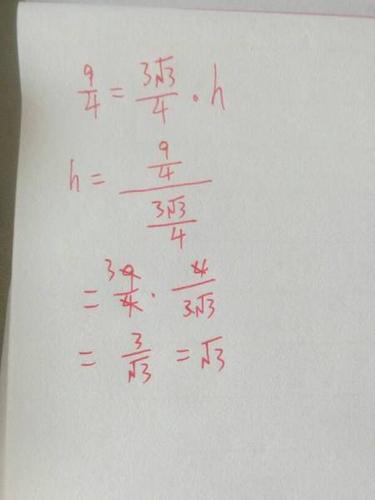 9/4 = 3√3/4 · h
h = (9/4)/(3√3/4)
= 3 9/4 · 4/3√3
= 3/√3 = √3